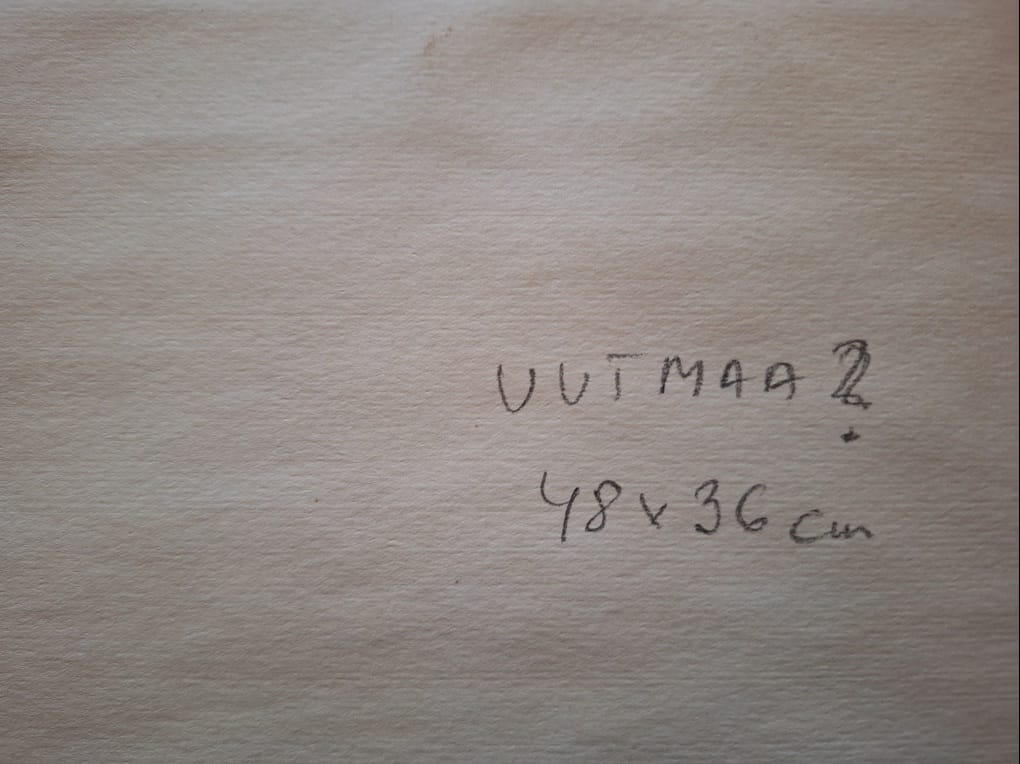 UUTMAA?
48x36 cm